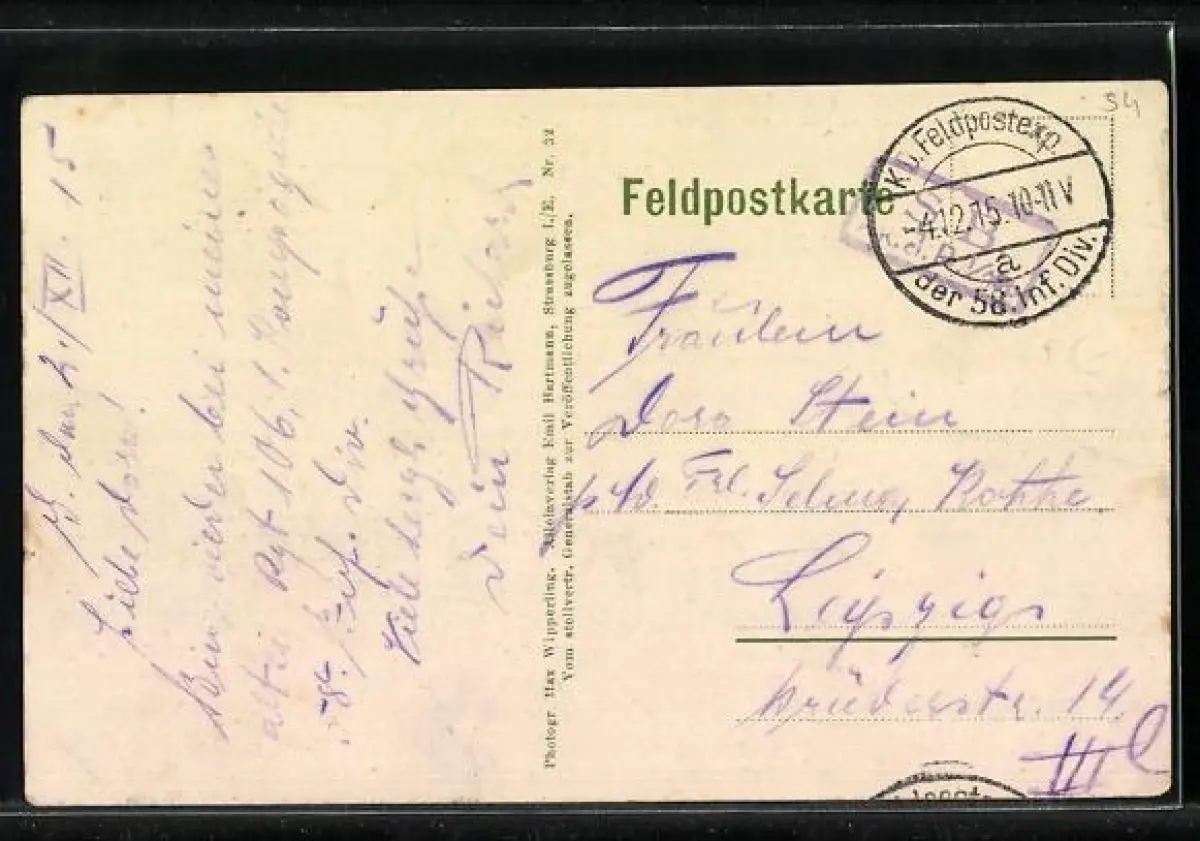 S4
Feldpostkarte
K. D. Feldpostexp.
4.12.15. 10-11 V
a
der 58. Inf. Div.
Fräulein
Dora Stein
Frl.
Leipzig
Brüderstr. 14
III l
Photogr Max Wipperling. Alleinverlag Emil Hartmann, Strassburg i./E. Nr. 32
Vom stellvertr. Generalstab zur Veröffentlichung zugelassen.
2/XII. 15
Liebe Dora!
Bin wieder bei meiner
alten Rgt 106, 1. Kompagnie
58. Inf. Div.
Viele herzl. Grüße
Dein